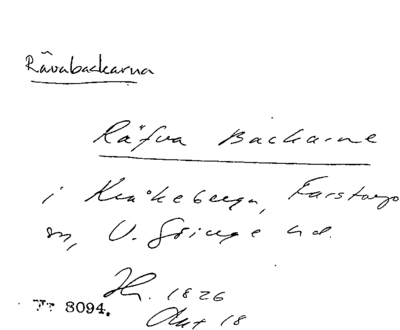 Råvabackarna
Räfva Backarne
i Kråkeberga, Farstorps
sn, V. Göinge hd.
Hr. 1826
Akt 18
Nr 8094.